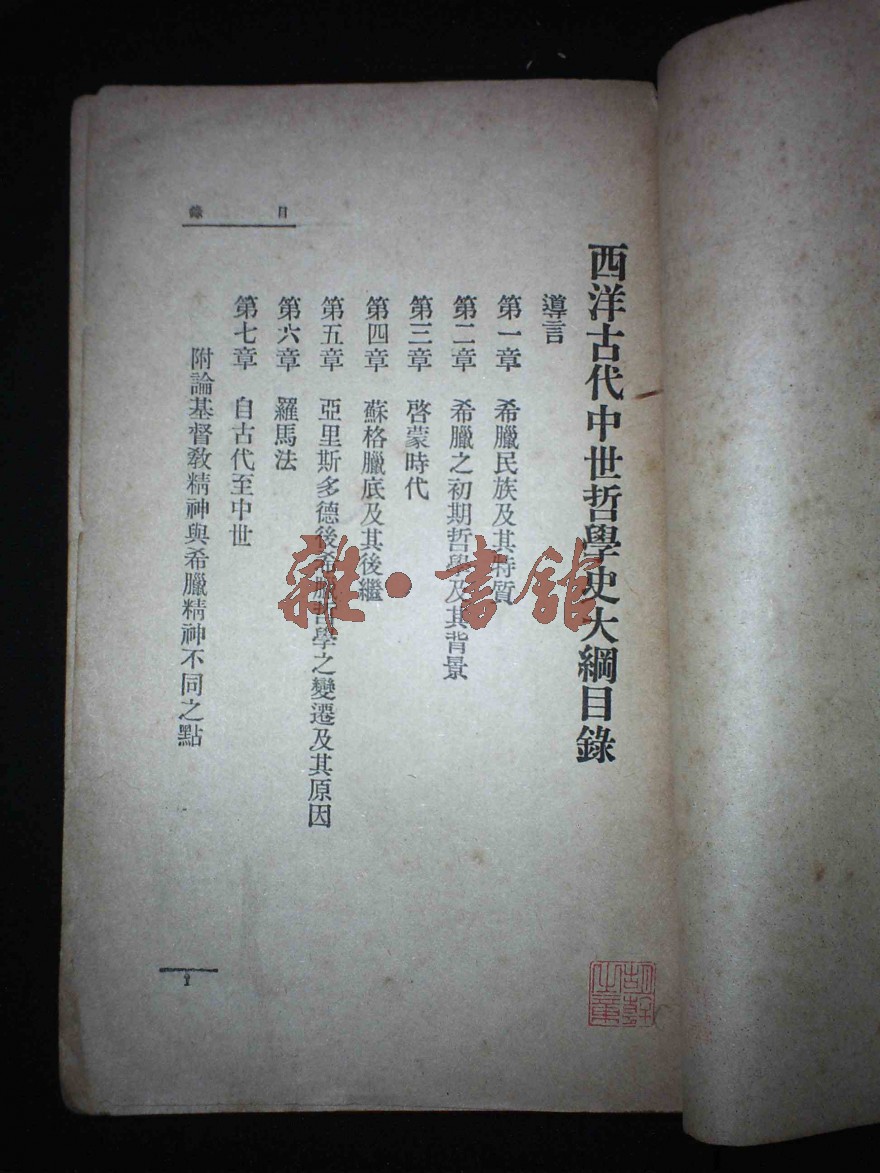 西洋古代中世哲學史大綱目錄
導言
第一章 希臘民族及其特質
第二章 希臘之初期哲學及其背景
第三章 啓蒙時代
第四章 蘇格臘底及其後繼
第五章 亞里斯多德後希臘哲學之變遷及其原因
第六章 羅馬法
第七章 自古代至中世
附論基督教精神與希臘精神不同之點
目錄
雜·書館